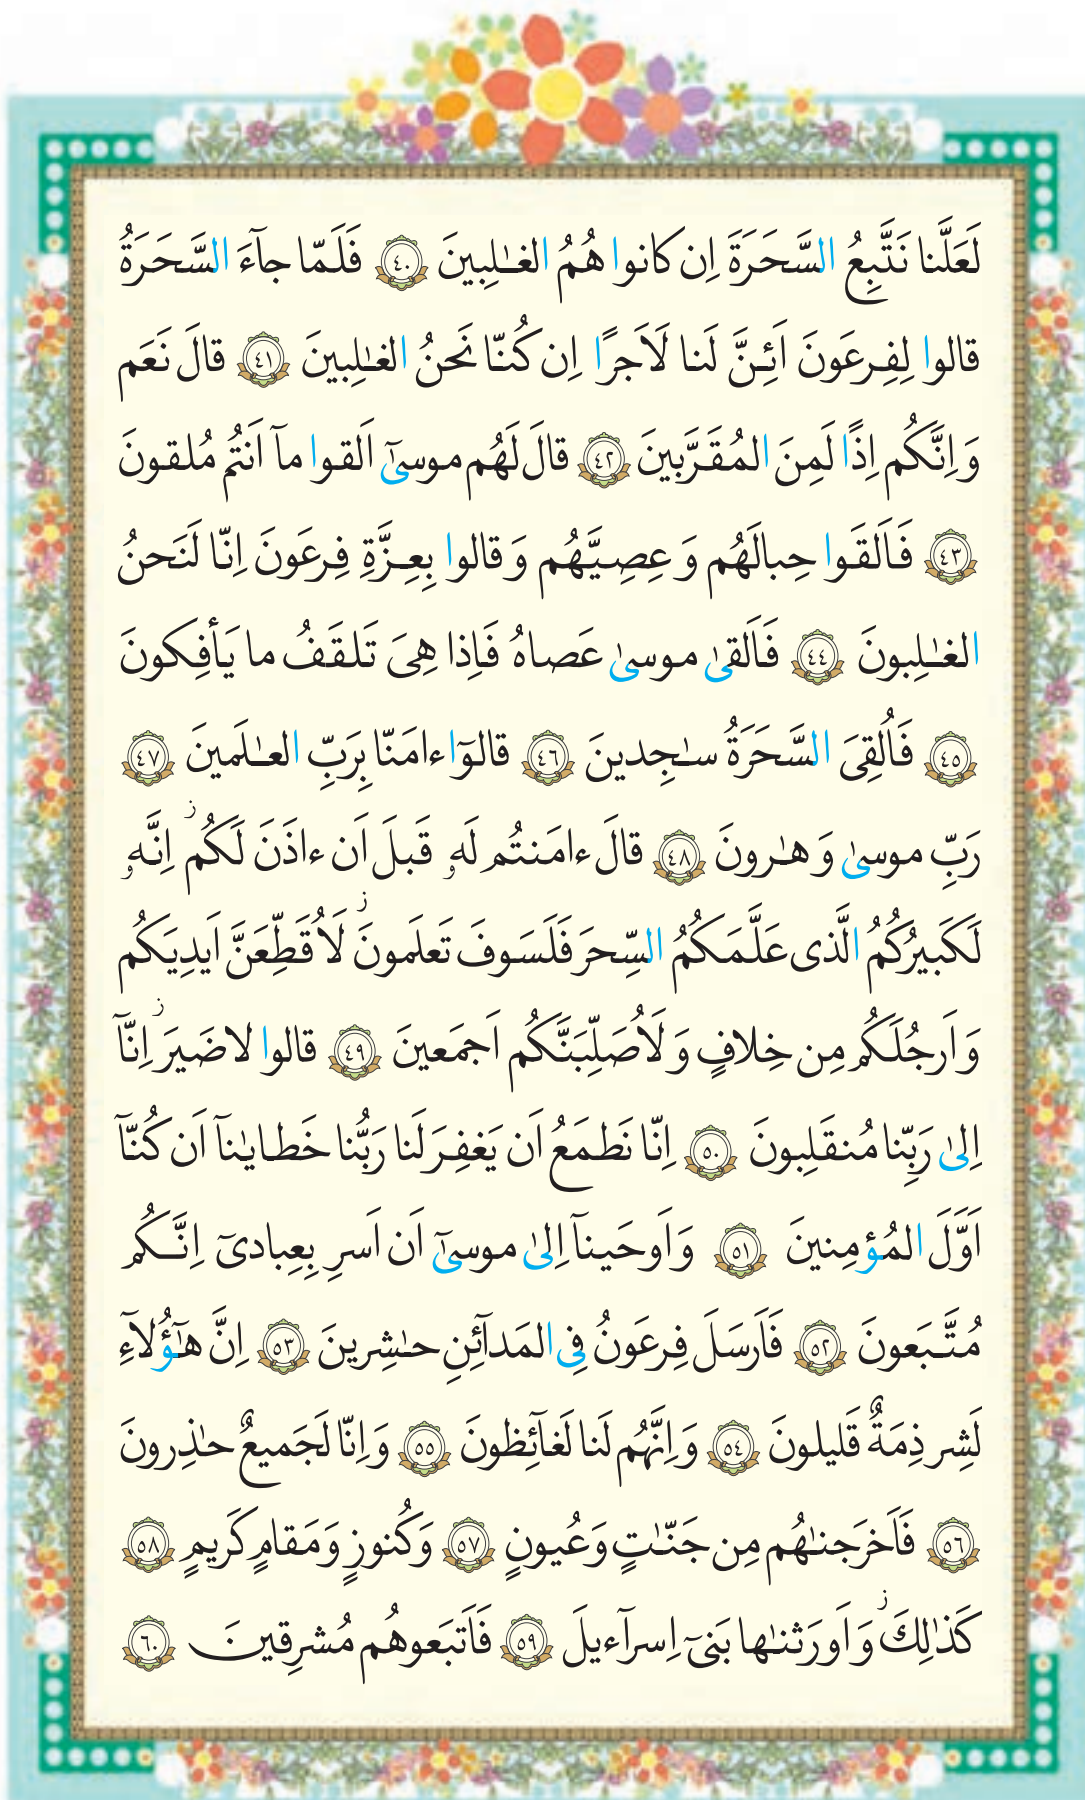 لَعَلَّنا نَتَّبِعُ السَّحَرَةَ اِن كانوا هُمُ الغـٰلِبينَ ٤٠ فَلَمّا جآءَ السَّحَرَةُ
قالوا لِفِرعَونَ اَئِنَّ لَنا لَاَجرًا اِن كُنّا نَحنُ الغـٰلِبينَ ٤١ قالَ نَعَم
وَ اِنَّكُم اِذًا لَمِنَ المُقَرَّبينَ ٤٢ قالَ لَهُم موسىٰٓ اَلقوا مآ اَنتُم مُلقونَ
٤٣ فَاَلقَوا حِبالَهُم وَ عِصِيَّهُم وَ قالوا بِعِزَّةِ فِرعَونَ اِنّا لَنَحنُ
الغـٰلِبونَ ٤٤ فَاَلقىٰ موسىٰ عَصاهُ فَاِذا هِىَ تَلقَفُ ما يَأفِكونَ
٤٥ فَاُلقِىَ السَّحَرَةُ سـٰجِدينَ ٤٦ قالوٓا ءامَنّا بِرَبِّ العـٰلَمينَ ٤٧
رَبِّ موسىٰ وَ هـٰرونَ ٤٨ قالَ ءامَنتُم لَهۥ قَبلَ اَن ءاذَنَ لَكُم ز اِنَّهۥ
لَكَبيرُكُمُ الَّذى عَلَّمَكُمُ السِّحرَ فَلَسَوفَ تَعلَمونَ ز لَاُقَطِّعَنَّ اَيدِيَكُم
وَ اَرجُلَكُم مِن خِلافٍ وَ لَاُصَلِّبَنَّكُم اَجمَعينَ ٤٩ قالوا لا ضَيرَ ز اِنَّآ
اِلىٰ رَبِّنا مُنقَلِبونَ ٥٠ اِنّا نَطمَعُ اَن يَغفِرَ لَنا رَبُّنا خَطايـٰنآ اَن كُنّآ
اَوَّلَ المُؤمِنينَ ٥١ وَ اَوحَينآ اِلىٰ موسىٰٓ اَن اَسرِ بِعِبادىٓ اِنَّكُم
مُتَّبَعونَ ٥٢ فَاَرسَلَ فِرعَونُ فِى المَدآئِنِ حـٰشِرينَ ٥٣ اِنَّ هـٰٓؤُلآءِ
لَشِرذِمَةٌ قَليلونَ ٥٤ وَ اِنَّهُم لَنا لَغآئِظونَ ٥٥ وَ اِنّا لَجَميعٌ حـٰذِرونَ
٥٦ فَاَخرَجنـٰهُم مِن جَنّـٰتٍ وَ عُيونٍ ٥٧ وَ كُنوزٍ وَ مَقامٍ كَريمٍ ٥٨
كَذٰلِكَ ز وَ اَورَثنـٰها بَنىٓ اِسرآءيلَ ٥٩ فَاَتبَعوهُم مُشرِقينَ ٦٠